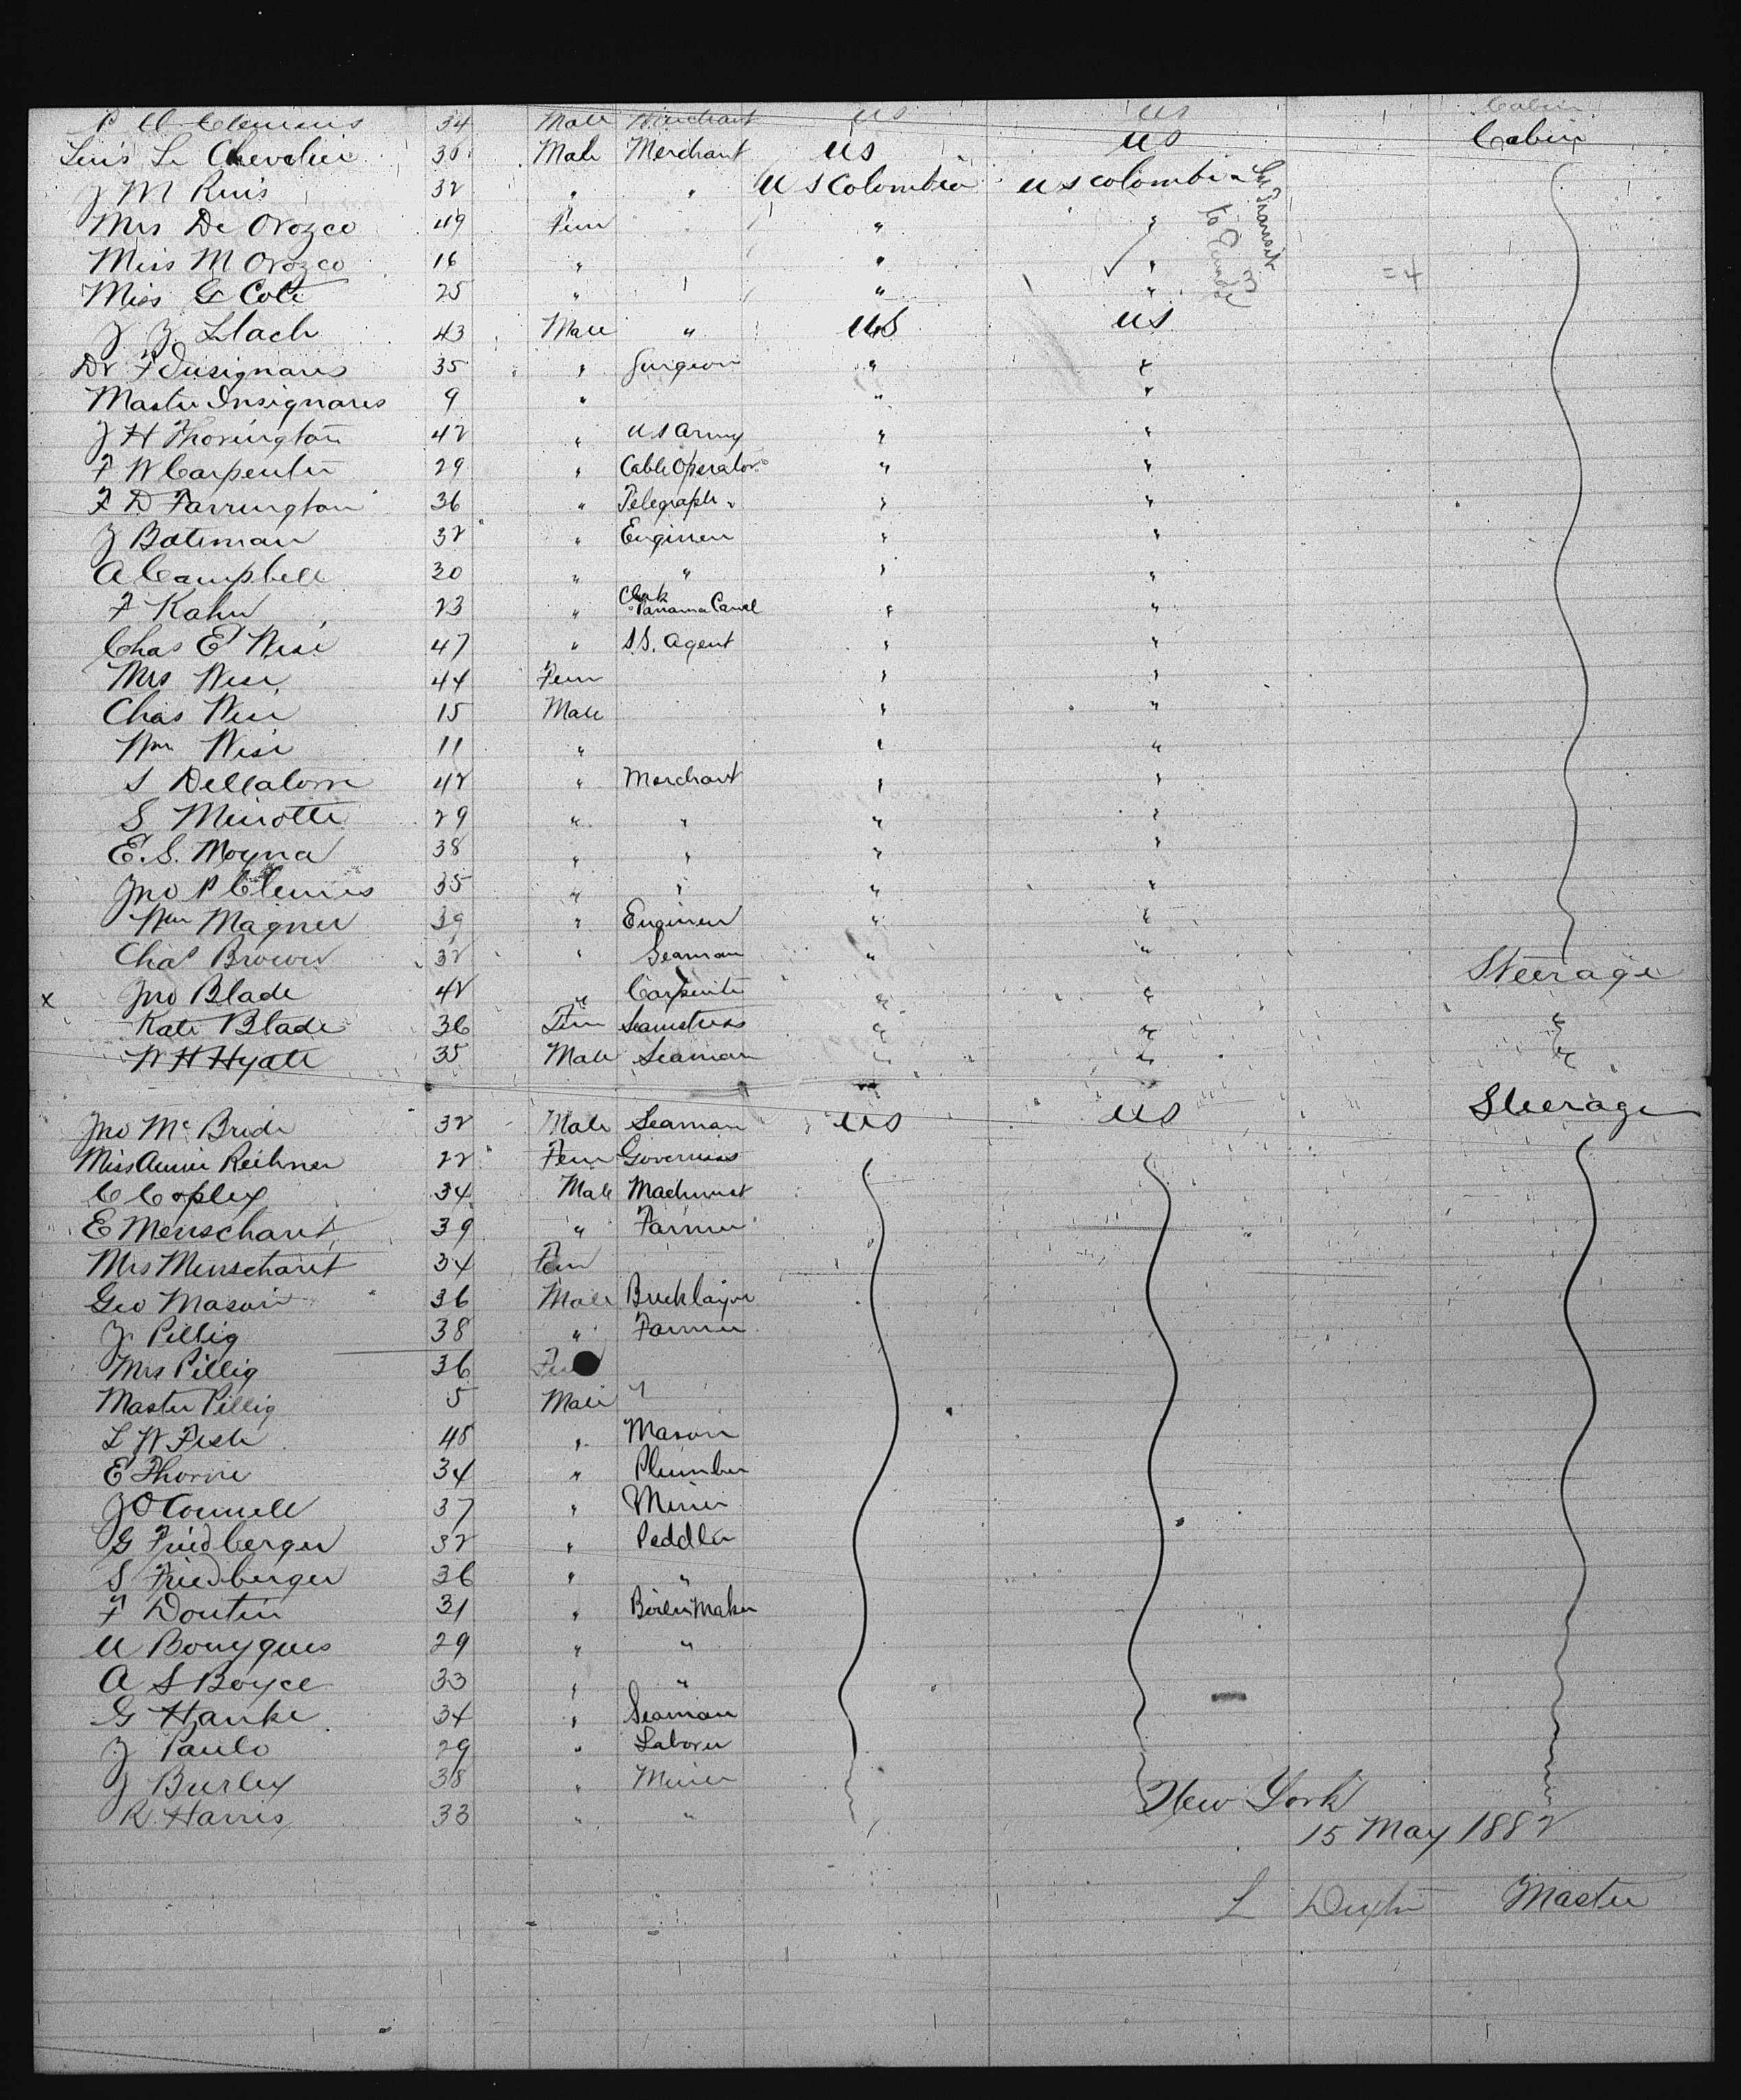 P Clemens 34 Male Merchant US US Cabin
Luis Le Chevalier 36 Male Merchant US US Cabin
J M Ruis 32 " " U S Colombia U S Colombia In Transit to
Mrs De Orozco 49 Fem " "
Miss M Orozco 16 " " " = 4
Miss G Cote 25 " " "
J J Llach 43 Male " US US
Dr F Insignares 35 " Surgeon " "
Master Insignares 9 " " "
J H Thorington 42 " US Army " "
F W Carpenter 29 " Cable Operator " "
F D Farrington 36 " Telegraph " " "
J Bateman 32 " Engineer " "
A Campbell 30 " " " "
F Kahn 23 " Clerk Panama Canal " "
Chas E Wise 47 " S.S. Agent " "
Mrs Wise 44 Fem " "
Chas Wise 15 Male " "
Wm Wise 11 " " "
S Dellatorre 42 " Merchant " "
S Minotte 29 " " " "
E. S. Moyna 38 " " " "
Jno P Clemens 35 " " " "
Wm Magner 39 " Engineer " "
Chas Brower 32 " Seaman " " Steerage
x Jno Blade 42 " Carpenter " "
Kate Blade 36 Fem Seamstress " " "
W H Hyatt 35 Male Seaman " " "
Jno Mc Bride 32 Male Seaman US US Steerage
Miss Annie Reihner 22 Fem Governess
C Copley 34 Male Machinist
E Menschant 39 " Farmer
Mrs Menschant 34 Fem
Geo Mason 36 Male Bricklayer
J. Pillig 38 " Farmer
Mrs Pillig 36 Fem
Master Pillig 5 Male "
L W Fish 48 " Mason
E Thorne 34 " Plumber
J O Connell 37 " Miner
G Friedberger 32 " Peddler
S Friedberger 36 " "
F Doutin 31 " Boiler Maker
U Bouyques 29 " "
A S Boyce 33 " "
G Hanke 34 " Seaman
J Paulo 29 " Laborer
J Burley 38 " Miner
R. Harris 33 " "
New York
15 May 1882
L Master